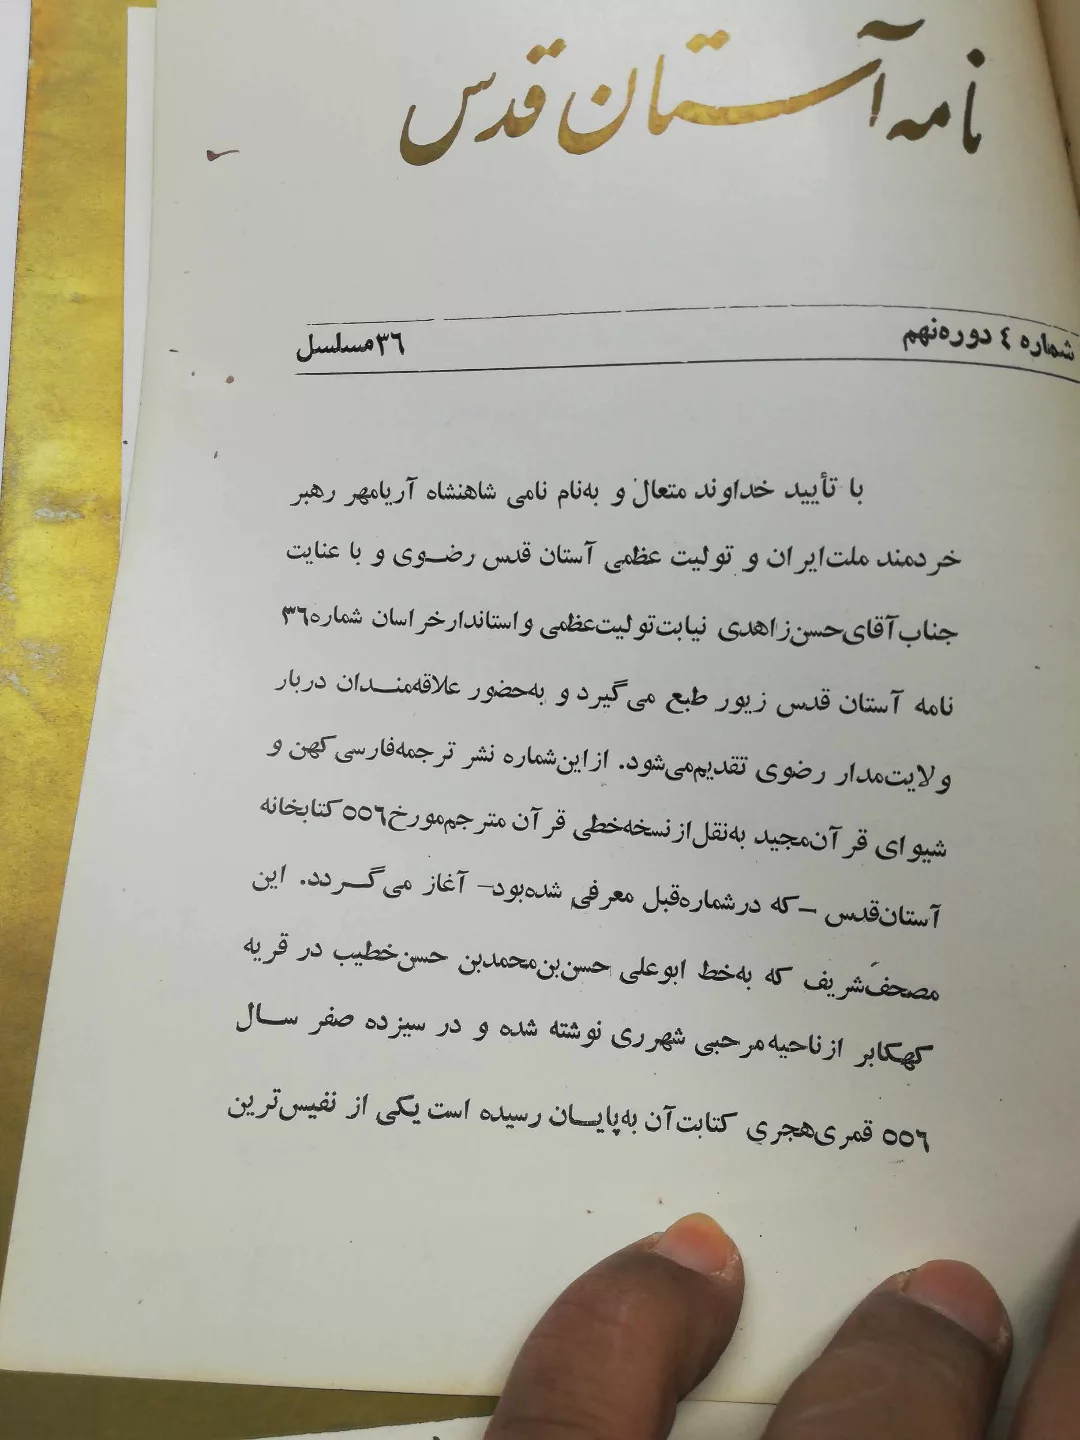 نامه آستان قدس
شماره ٤ دوره نهم
۳٦ مسلسل
با تأیید خداوند متعال و به‌نام نامی شاهنشاه آریامهر رهبر
خردمند ملت ایران و تولیت عظمی آستان قدس رضوی و با عنایت
جناب آقای حسن زاهدی نیابت تولیت عظمی و استاندار خراسان شماره ۳٦
نامه آستان قدس زیور طبع می‌گیرد و به‌حضور علاقه‌مندان دربار
ولایت‌مدار رضوی تقدیم می‌شود. از این شماره نشر ترجمه فارسی کهن و
شیوای قرآن مجید به‌نقل از نسخه خطی قرآن مترجم مورخ ٥٥٦ کتابخانه
آستان قدس -که در شماره قبل معرفی شده بود- آغاز می‌گردد. این
مصحف شریف که به‌خط ابوعلی حسن بن محمد بن حسن خطیب در قریه
کهکابر از ناحیه مرحبی شهر ری نوشته شده و در سیزده صفر سال
٥٥٦ قمری هجری کتابت آن به‌پایان رسیده است یکی از نفیس‌ترین